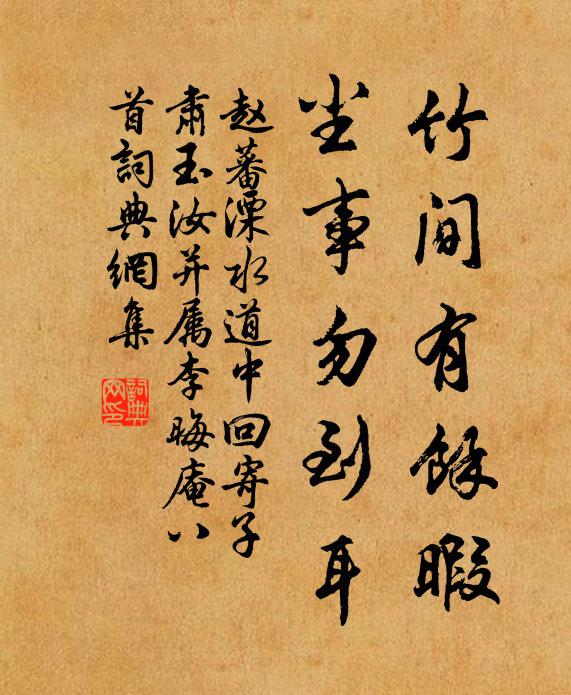 竹间有馀暇
尘事勿到耳
赵蕃溧水道中回寄子
肃玉汝并属李晦庵八
首詞典網集
詞典網印